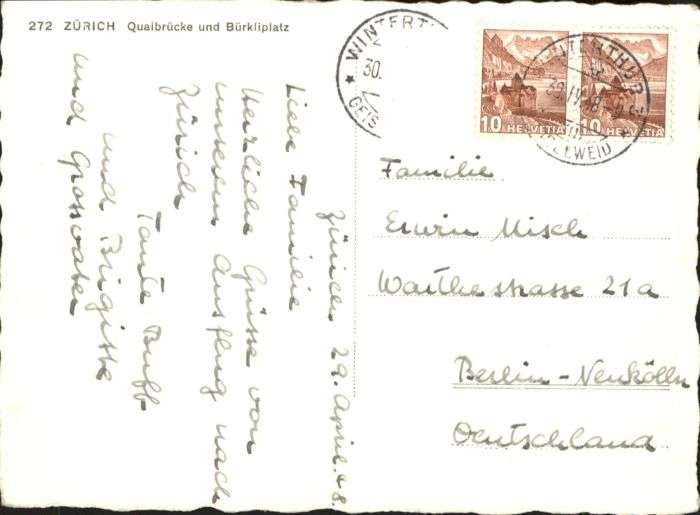 272 ZÜRICH Quaibrücke und Bürkliplatz
WINTERTHUR
30.
GEIS
WINTERTHUR
30. IV. 48
10 HELVETIA
10 HELVETIA
Zürich 29. April 48.
Liebe Familie
Herzliche Grüsse von
unserem Ausflug nach
Zürich
Tante Buff
und Brigitte
und Grossvater
Familie
Erwin Misch
Warthestrasse 21a
Berlin-Neukölln
Deutschland